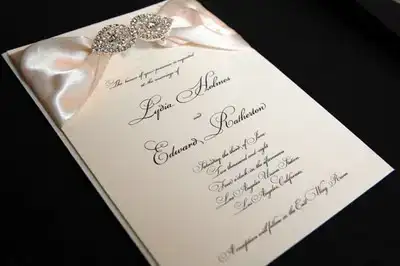 The honor of your presence is requested
at the marriage of
Lydia Holmes
and
Edward Ratherton
Saturday the third of June
Two thousand and eight
Four o'clock in the afternoon
Los Angeles Union Station
Los Angeles, California
A reception will follow in the East Wing Room